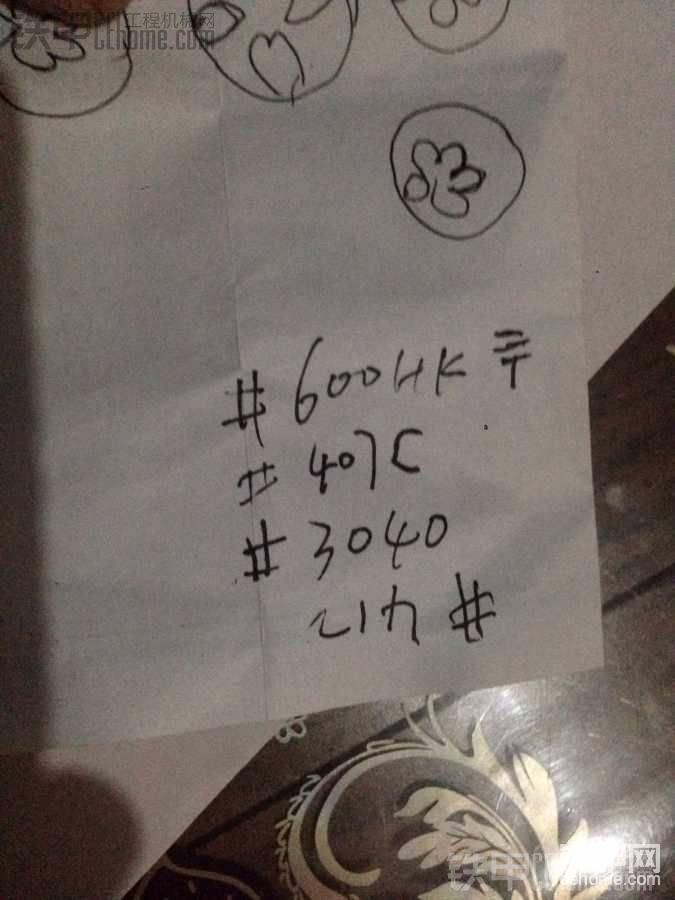 铁甲工程机械网
cehome.com
# 600HK
# 407C
# 3040
#
铁甲网
cehome.com